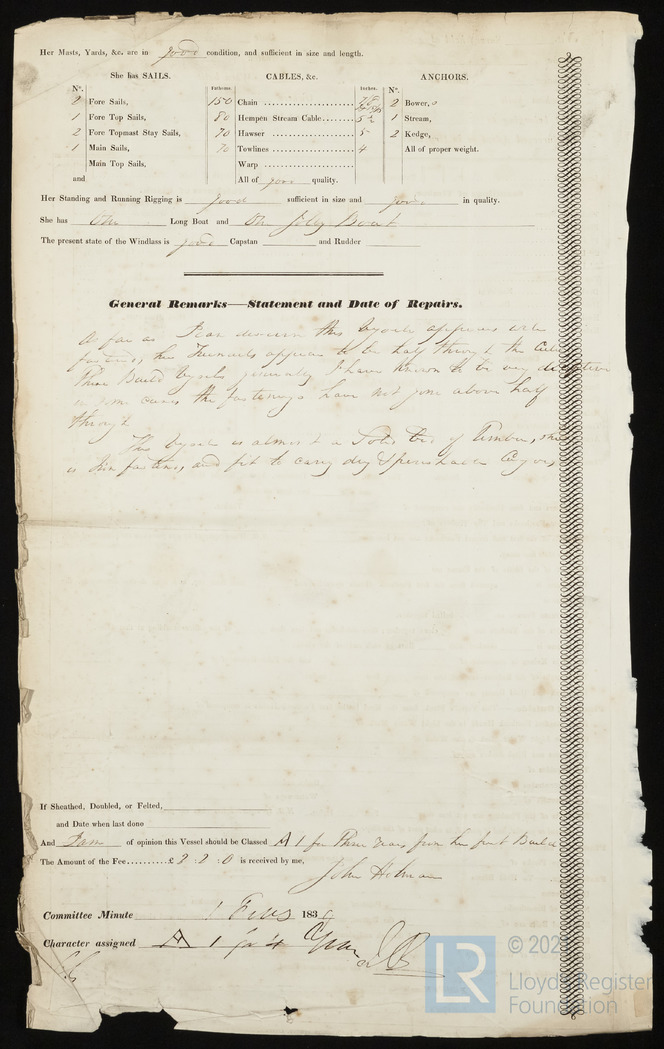 Her Masts, Yards, &c. are in good condition, and sufficient in size and length.
She has SAILS. CABLES, &c. ANCHORS.
N°. Fathoms. Inches. N°.
2 Fore Sails, 150 Chain 2 Bower,
1 Fore Top Sails, 80 Hempen Stream Cable 5½ 1 Stream,
2 Fore Topmast Stay Sails, 70 Hawser 5 2 Kedge,
1 Main Sails, 70 Towlines 4 All of proper weight.
Main Top Sails, Warp
and All of good quality.
Her Standing and Running Rigging is good sufficient in size and good in quality.
She has One Long Boat and One Jolly Boat
The present state of the Windlass is good Capstan and Rudder
General Remarks—Statement and Date of Repairs.
As far as I can discern this Vessel appears well
fastened, her Treenails appear to be half through the
These Build Vessels generally I have known to be very deceptive
in some cases the fastenings have not gone above half
through
This Vessel is almost a Solid of Timber, she
is fastened, and fit to carry dry & perishable Cargoes
If Sheathed, Doubled, or Felted,
and Date when last done
And I am of opinion this Vessel should be Classed A 1 for Three Years from her first Build
The Amount of the Fee £2 : 2 : 0 is received by me,
John Holman
Committee Minute 1 183
Character assigned A 1 for 4
LR
© 202
Lloyd's Register
Foundation